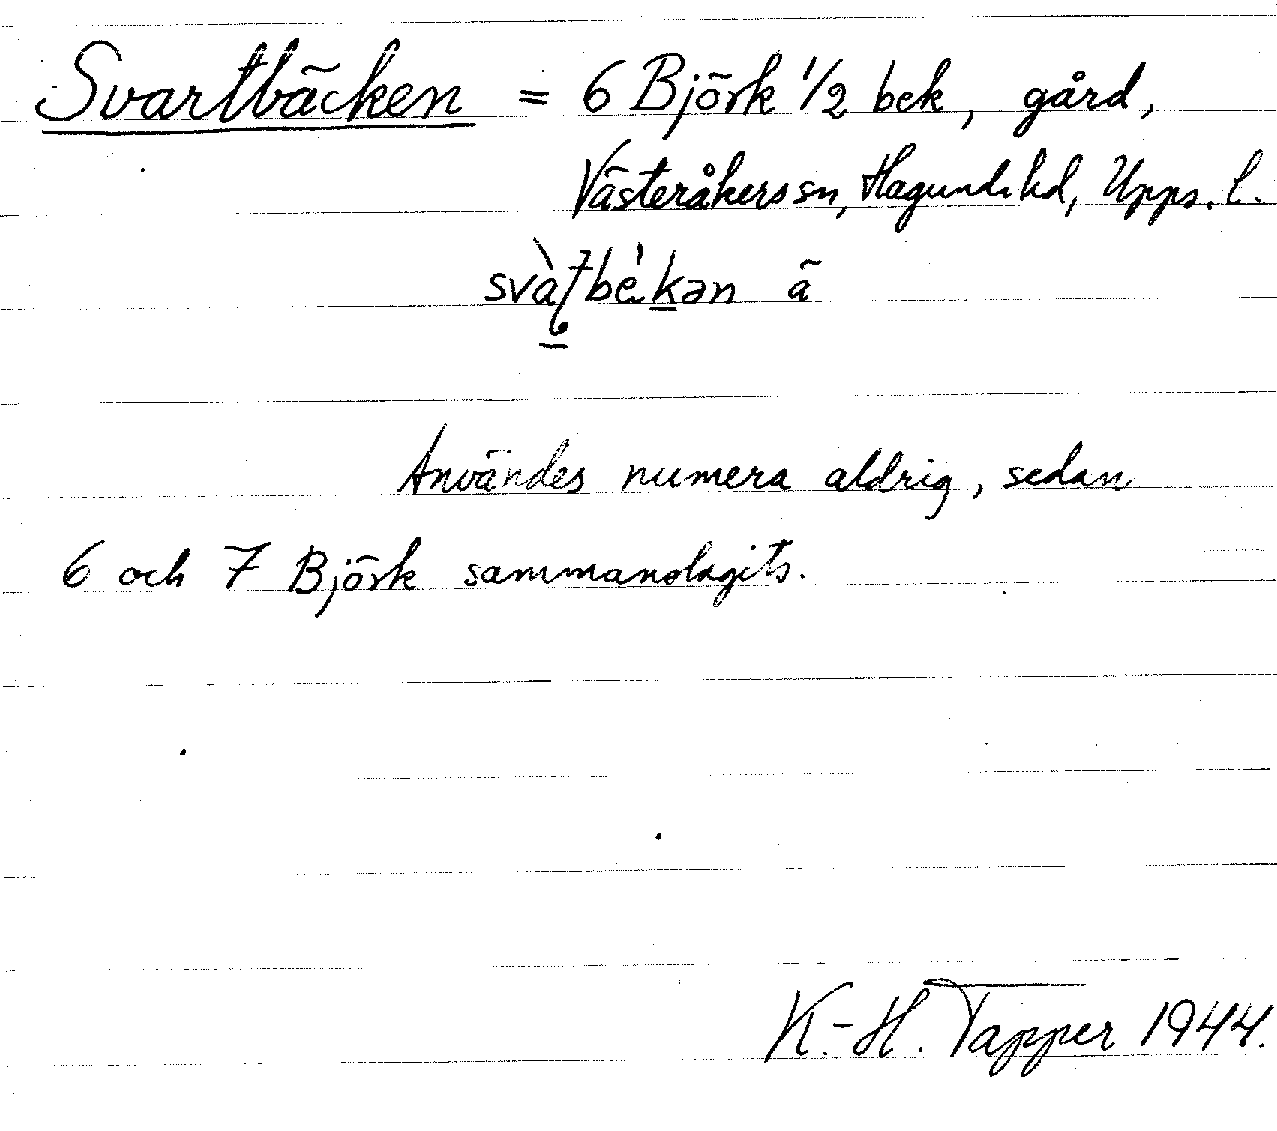 Svartbäcken = 6 Björk 1/2 bek, gård,
Västeråkers sn, Hagunda hd, Upps. l.
ā
Användes numera aldrig, sedan
6 och 7 Björk sammanslagits.
K.-H. Tapper 1944.